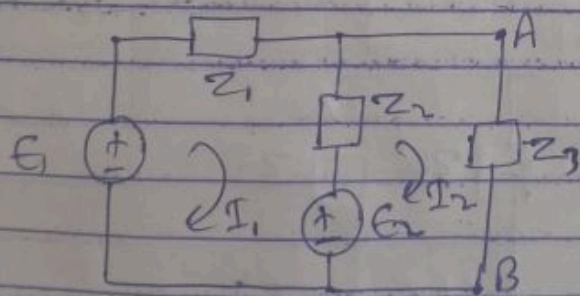 A
Z1
Z2
Z3
E1
+
-
I1
+
-
E2
I2
B